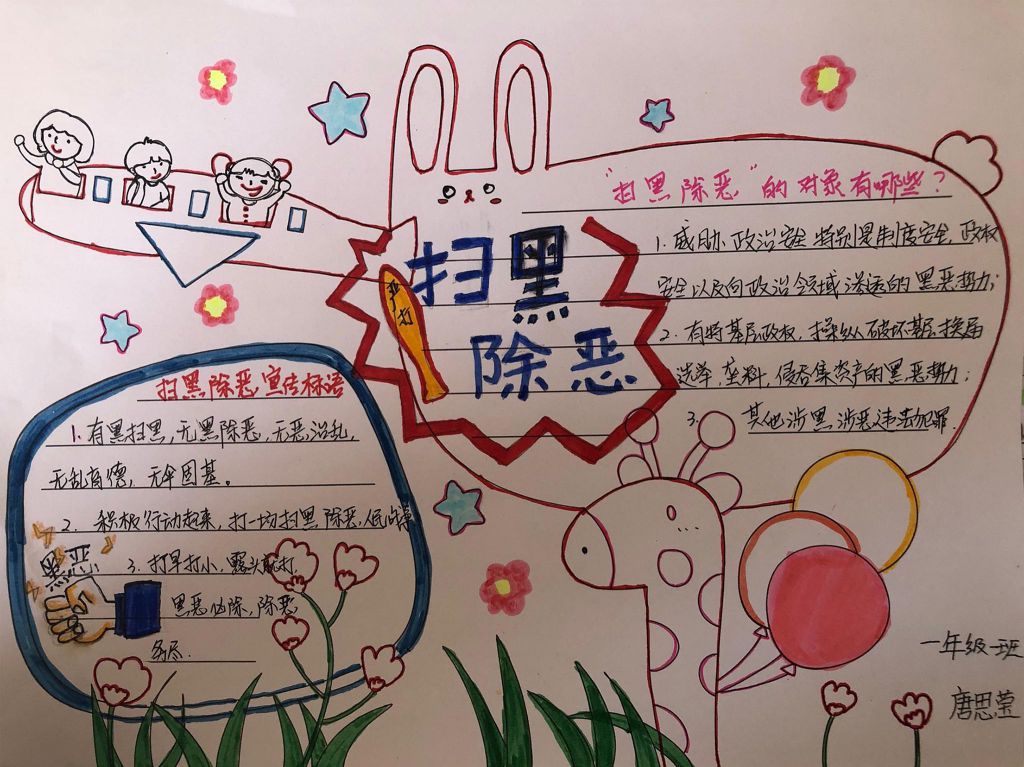 "扫黑除恶"的对象有哪些?
1. 威胁政治安全特别是制度安全、政权
安全以及向政治领域渗透的黑恶势力;
2. 把持基层政权、操纵破坏基层换届
选举、垄断, 侵吞集资产的黑恶势力;
3. 其他涉黑涉恶违法犯罪.
扫黑
除恶
严打
扫黑除恶宣传标语
1. 有黑扫黑, 无黑除恶, 无恶治乱,
无乱育德, 无伞固基。
2. 积极行动起来, 打一场扫黑除恶人民战争
3. 打早打小, 露头就打,
黑恶必除, 除恶
务尽.
黑恶
一年级一班
唐思莹